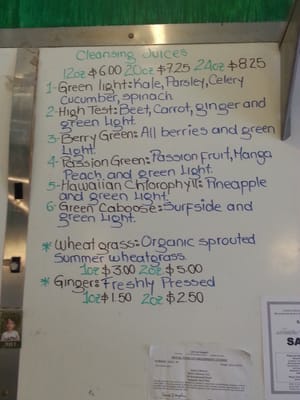 Cleansing Juices
12oz $6.00 20oz $7.25 24oz $8.25
1- Green light: Kale, Parsley, Celery
Cucumber, spinach
2- High Test: Beet, Carrot, ginger and
green Light.
3- Berry Green: All berries and green
Light.
4- Passion Green: Passion Fruit, Mango
Peach, and green Light.
5- Hawaiian Chlorophyll: Pineapple
and green Light.
6- Green Caboose: Surfside and
green Light.
* Wheatgrass: Organic sprouted
Summer wheatgrass.
1oz $3.00 2oz $5.00
* Ginger: Freshly Pressed
1oz $1.50 2oz $2.50